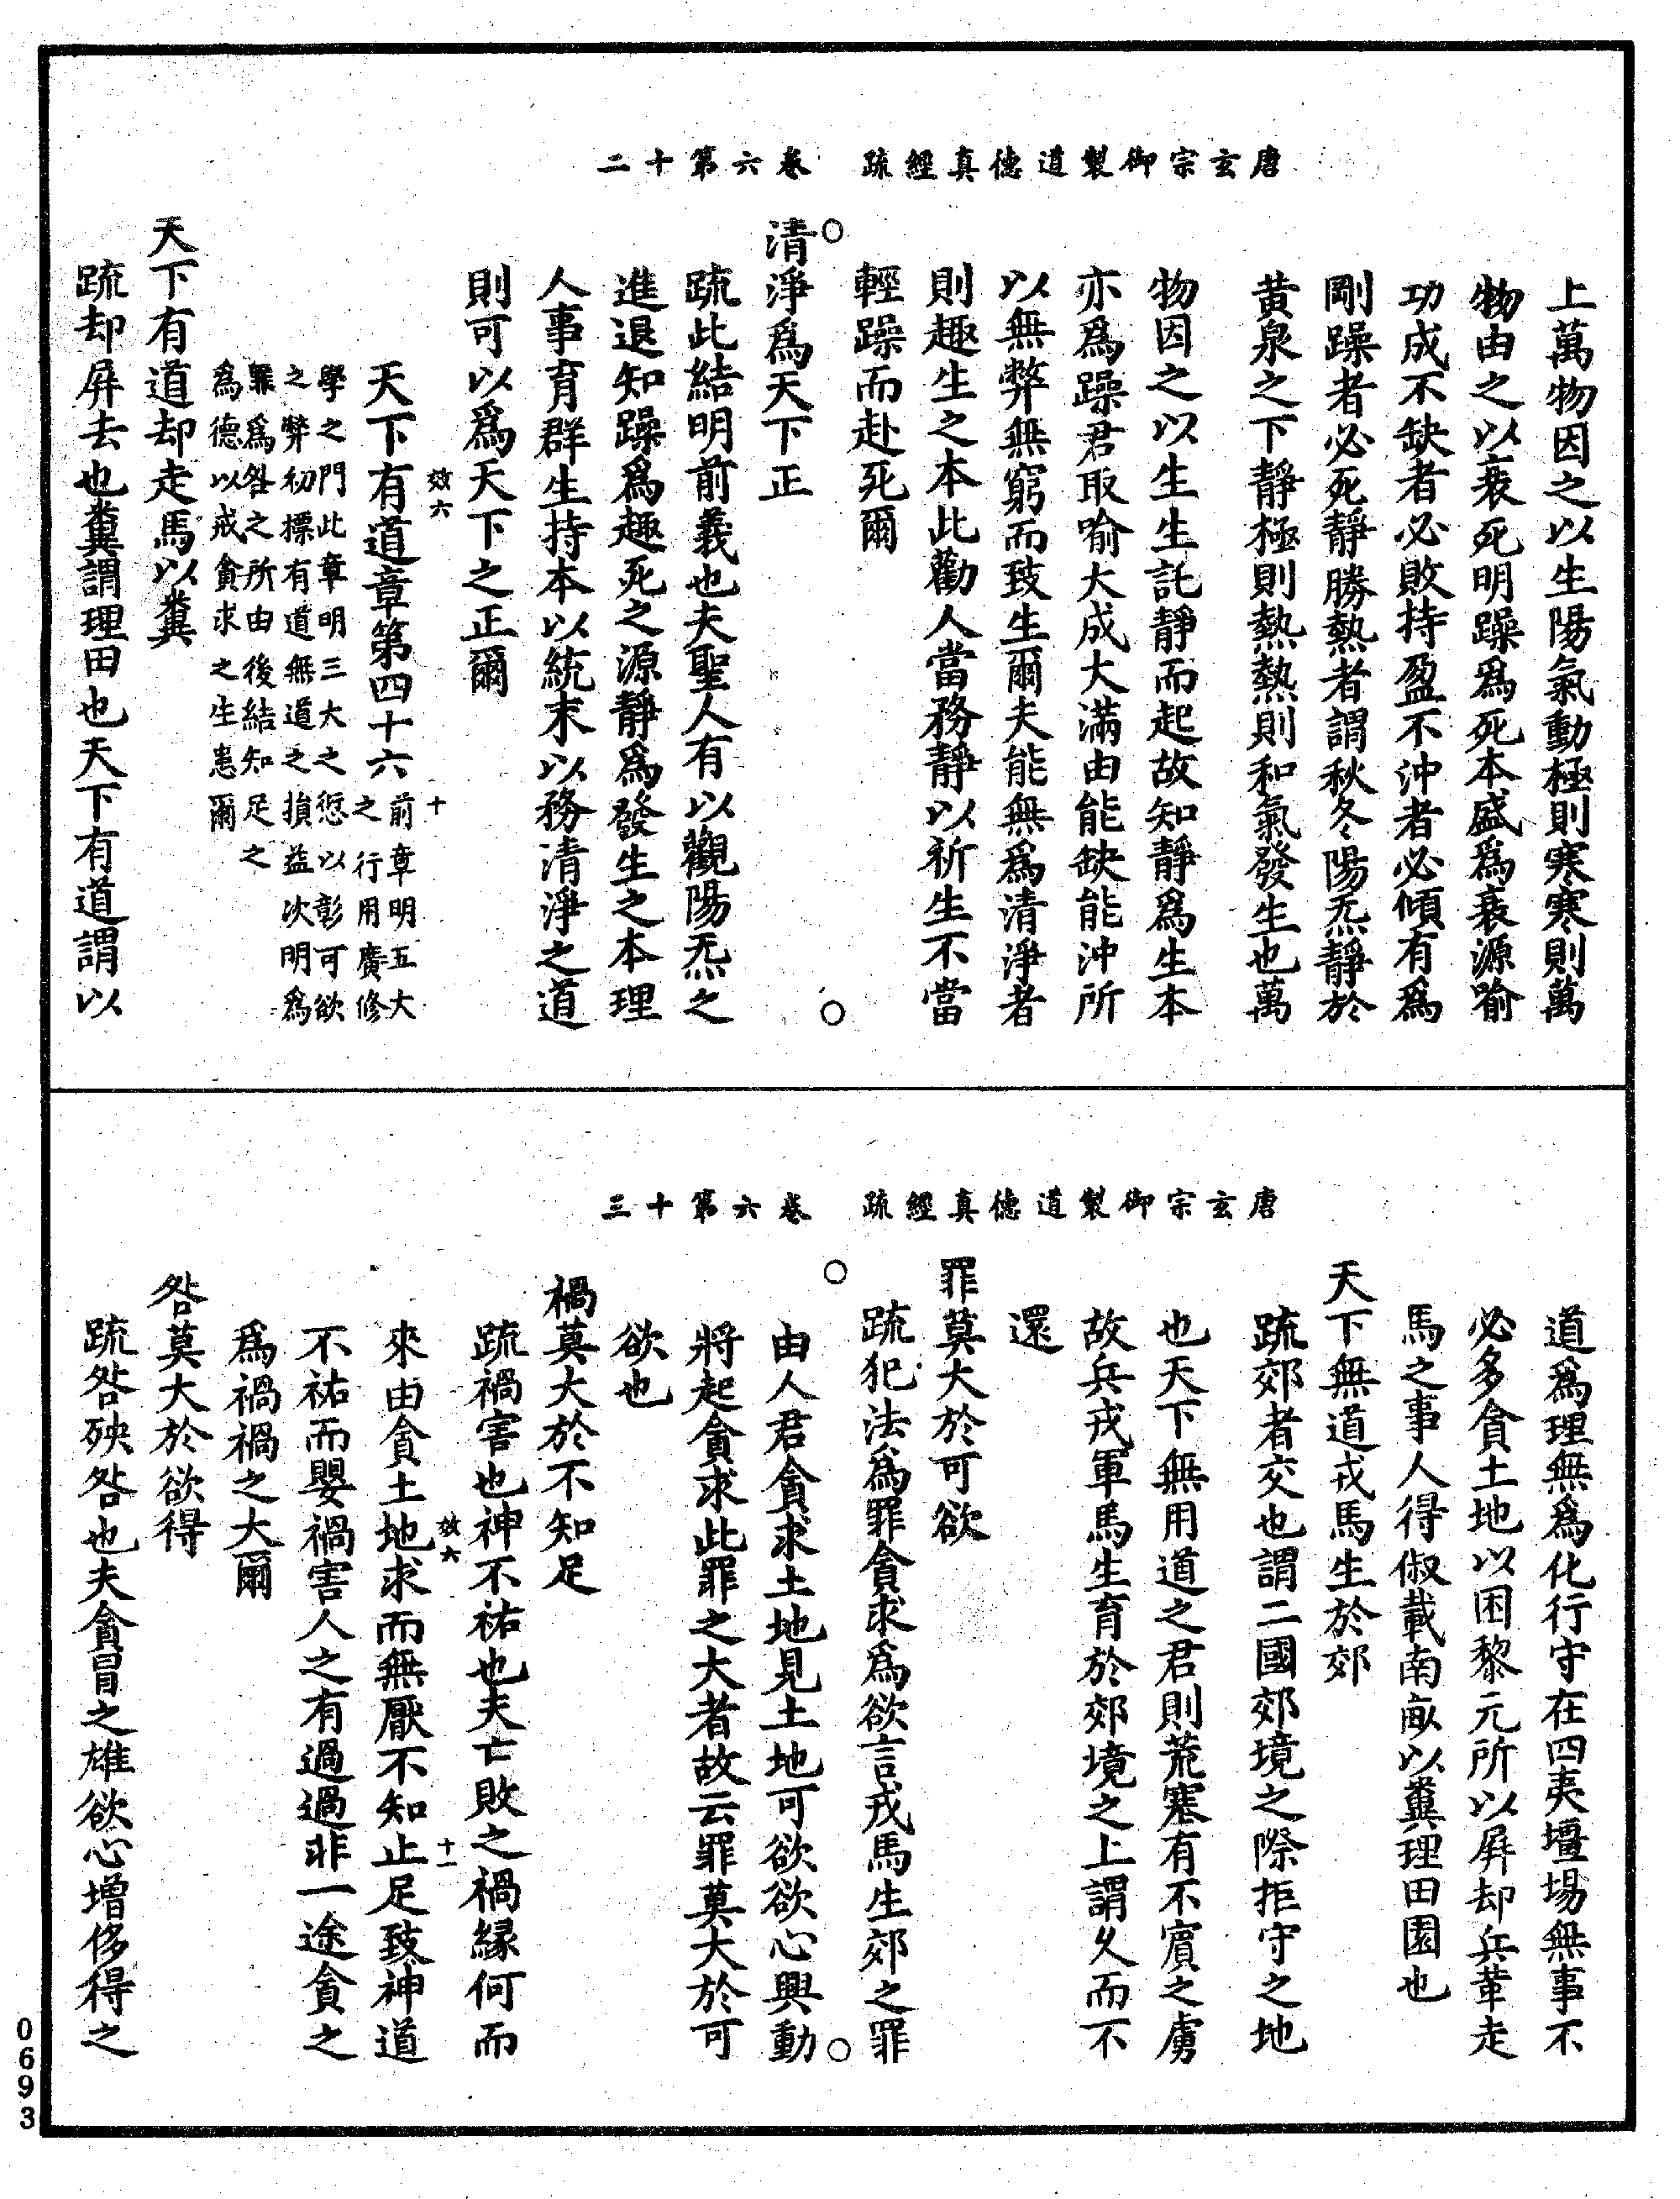 唐玄宗御製道德真經疏　卷六第十二
上萬物因之以生陽氣動極則寒寒則萬
物由之以衰死明躁爲死本盛爲衰源喻
功成不缺者必敗持盈不沖者必傾有爲
剛躁者必死靜勝熱者謂秋冬陽炁靜於
黃泉之下靜極則熱熱則和氣發生也萬
物因之以生生託靜而起故知靜爲生本
亦爲躁君取喻大成大滿由能缺能沖所
以無弊無窮而致生爾夫能無爲清淨者
則趣生之本此勸人當務靜以祈生不當
輕躁而赴死爾
清淨爲天下正
疏此結明前義也夫聖人有以觀陽炁之
進退知躁爲趣死之源靜爲發生之本理
人事育群生持本以統末以務清淨之道
則可以爲天下之正爾
效六　十
天下有道章第四十六
前章明五大
之行用廣修
學之門此章明三大之愆以彰可欲
之弊初標有道無道之損益次明爲
罪爲咎之所由後結知足之
爲德以戒貪求之生恚爾
天下有道却走馬以糞
疏却屏去也糞謂理田也天下有道謂以
唐玄宗御製道德真經疏　卷六第十三
道爲理無爲化行守在四夷壃場無事不
必多貪土地以困黎元所以屏却兵革走
馬之事人得俶載南畝以糞理田園也
天下無道戎馬生於郊
疏郊者交也謂二國郊境之際拒守之地
也天下無用道之君則荒塞有不賓之虜
故兵戎軍馬生育於郊境之上謂久而不
還
罪莫大於可欲
疏犯法爲罪貪求爲欲言戎馬生郊之罪
由人君貪求土地見土地可欲欲心興動
將起貪求此罪之大者故云罪莫大於可
欲也
禍莫大於不知足
疏禍害也神不祐也夫亡敗之禍緣何而
來由貪土地求而無厭不知止足致神道
效六　十一
不祐而嬰禍害人之有過過非一途貪之
爲禍禍之大爾
咎莫大於欲得
疏咎殃咎也夫貪冒之雄欲心增侈得之
0693